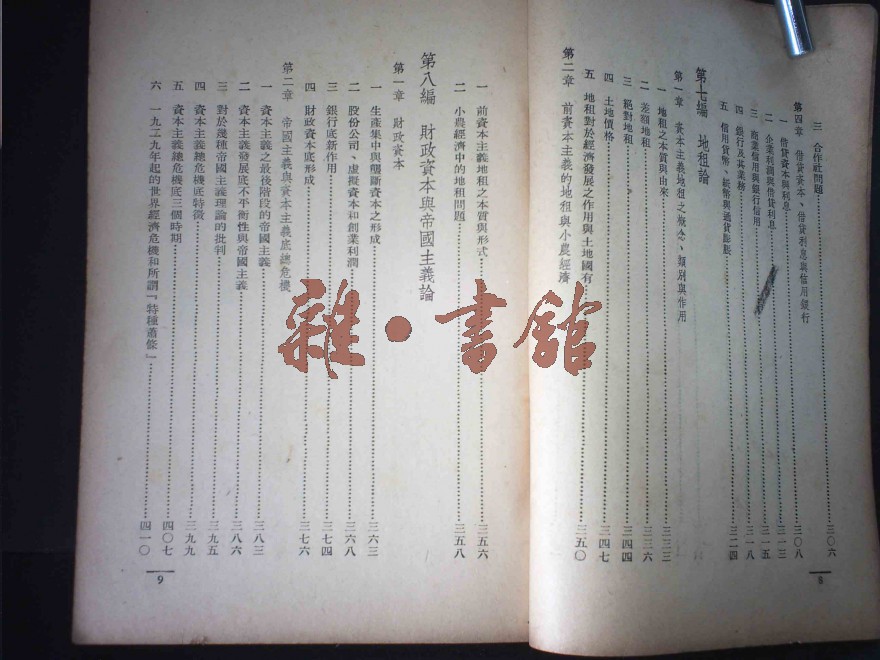 三 合作社問題……三〇六
第四章 借貸資本、借貸利息與信用銀行……三〇八
一 借貸資本與利息……三一三
二 企業利潤與借貸利息……三一五
三 商業信用與銀行信用……三一八
四 銀行及其業務……三二四
五 信用貨幣、紙幣與通貨膨脹
第七編 地租論
第一章 資本主義地租之概念、類別與作用
一 地租之本質與由來……三三三
二 差額地租……三三六
三 絕對地租……三四四
四 土地價格……三四七
五 地租對於經濟發展之作用與土地國有……三五〇
第二章 前資本主義的地租與小農經濟
8
一 前資本主義地租之本質與形式……三五六
二 小農經濟中的地租問題……三五八
第八編 財政資本與帝國主義論
第一章 財政資本
一 生產集中與壟斷資本之形成……三六三
二 股份公司、虛擬資本和創業利潤……三六八
三 銀行底新作用……三七四
四 財政資本底形成……三七六
第二章 帝國主義與資本主義底總危機
一 資本主義之最後階段的帝國主義……三八三
二 資本主義發展底不平衡性與帝國主義……三八六
三 對於幾種帝國主義理論的批判……三九五
四 資本主義總危機底特徵……三九九
五 資本主義總危機底三個時期……四〇七
六 一九二九年起的世界經濟危機和所謂『特種蕭條』……四一〇
9
雜·書館